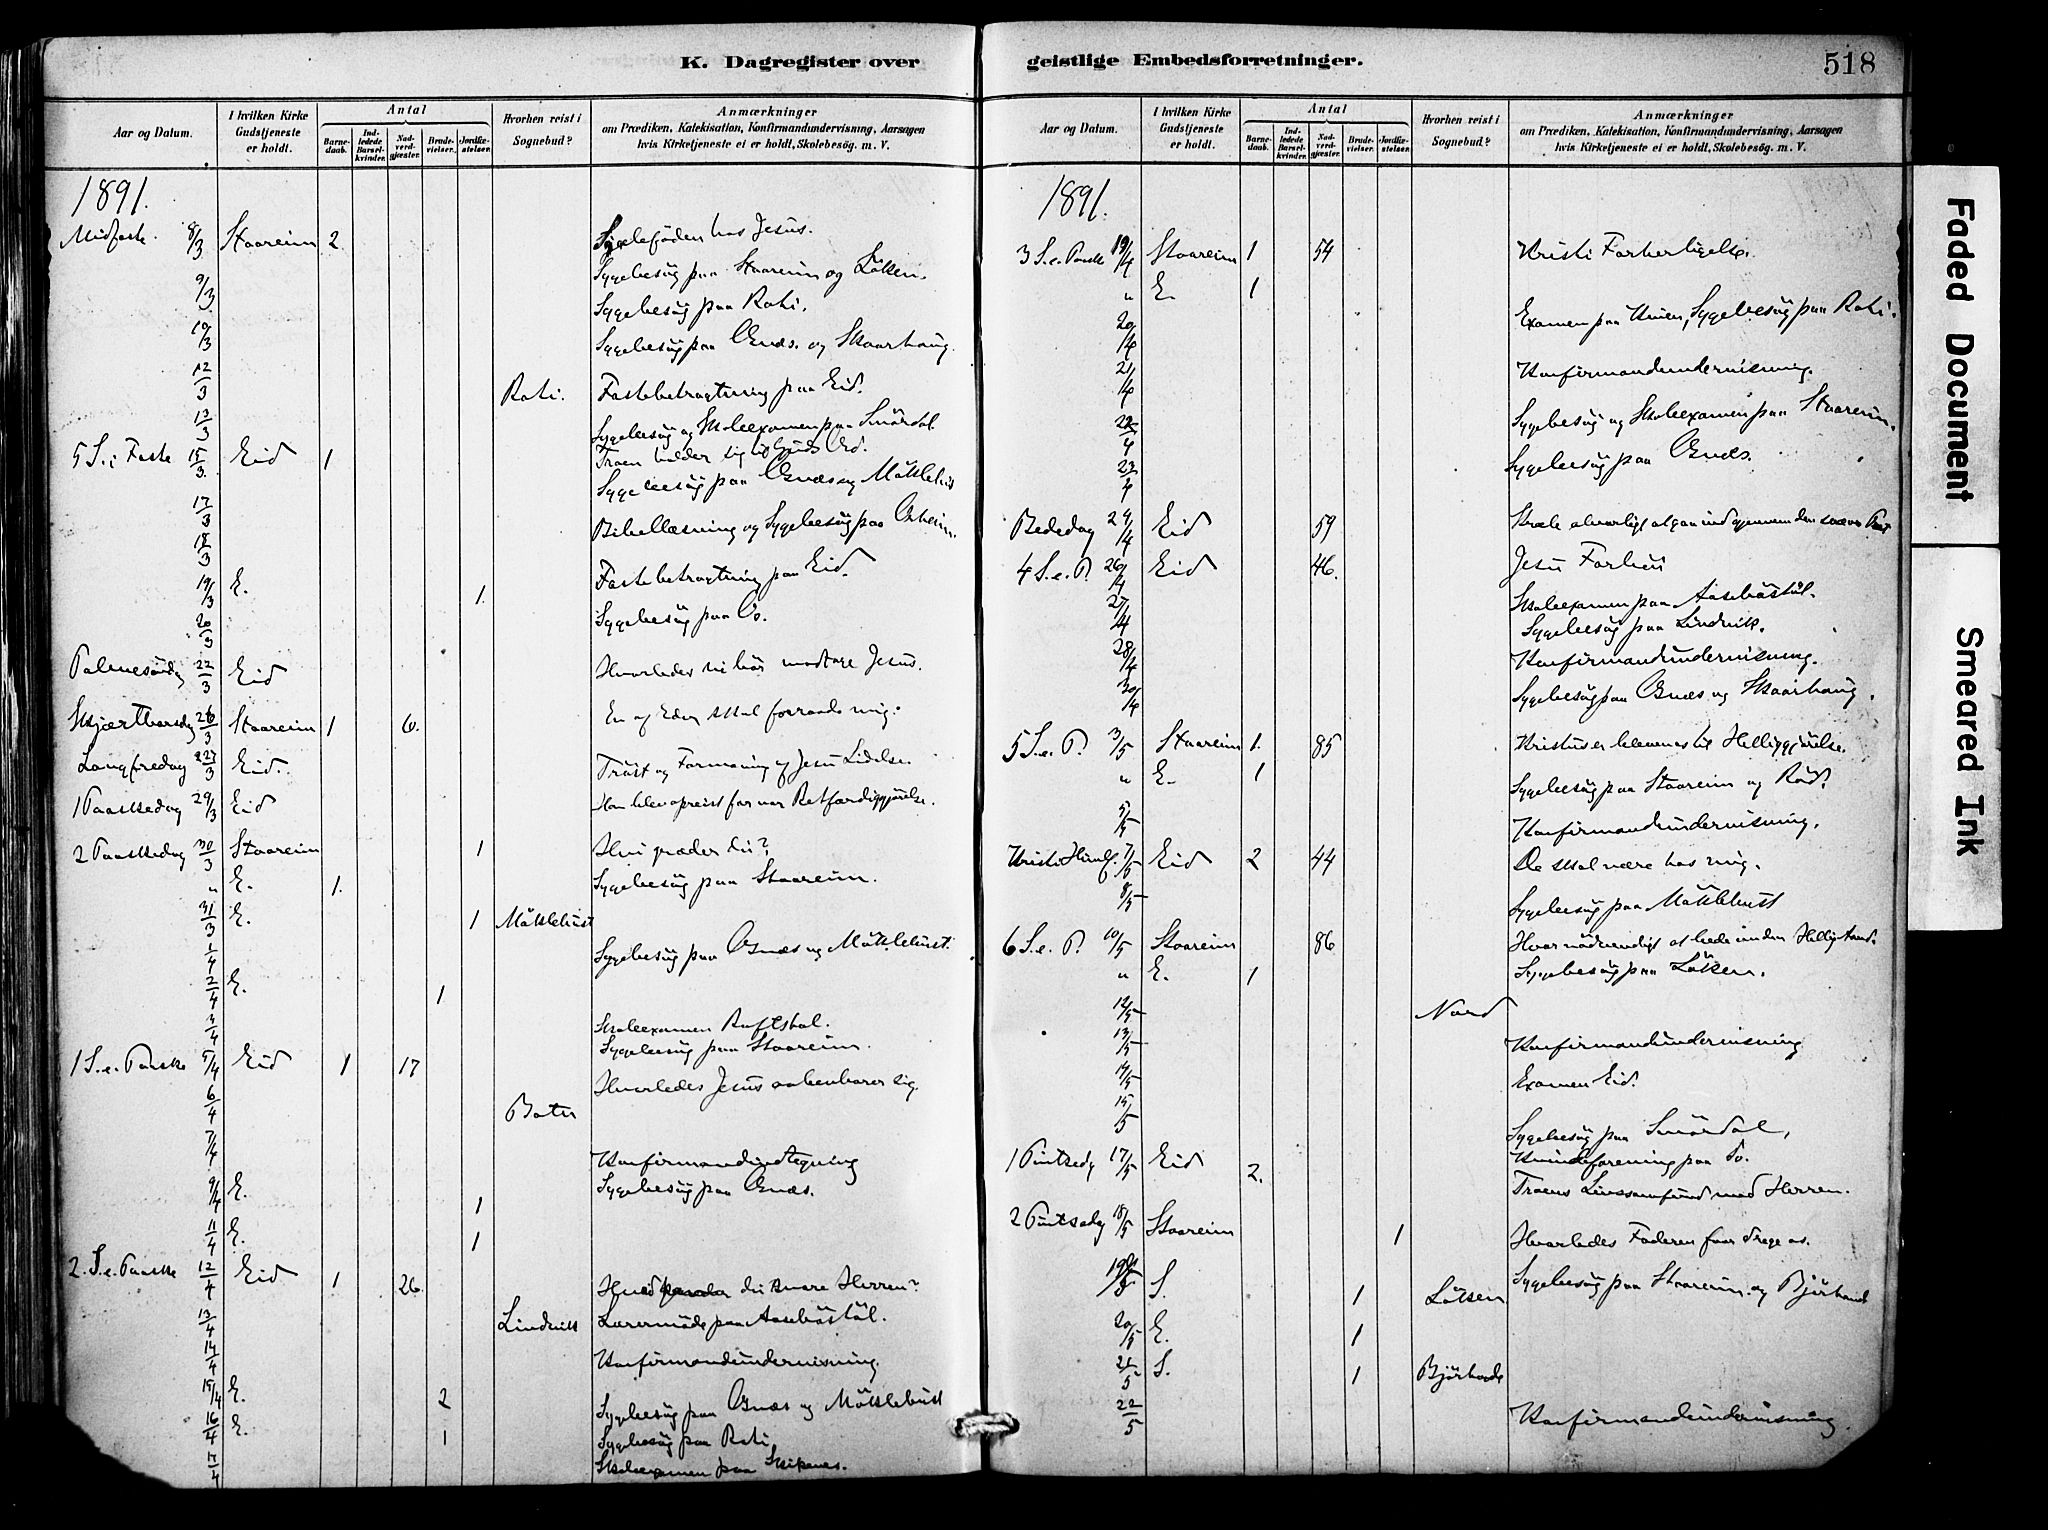 K. Dagregister over geistlige Embedsforretninger. 518
Aar og Datum. I hvilken Kirke Gudstjeneste er holdt. Antal Barnedaab. Indledede Barselkvinder. Nadverdgjester. Brudevielser. Jordfæstelser. Hvorhen reist i Sognebud? Anmærkninger om Prædiken, Katekisation, Konfirmandundervisning, Aarsagen hvis Kirketjeneste ei er holdt, Skolebesøg. m. V.
1891.
Midfaste 8/3 Staareim 2 hos Jesus.
Sygebesøg paa Staareim og Løkken.
9/3 Sygebesøg paa Roti.
10/3 Sygebesøg paa Osnæs og Skaarhaug.
12/3 Roti. Fastebetragtning paa Eid.
13/3 Sygebesøg og Skoleexamen paa Smördal.
5 S. i Faste 15/3 Eid 1 Troen holder sig til Guds Ord.
Sygebesøg paa Osnæs og Möklebust
17/3 Bibellæsning og Sygebesøg paa
18/3
19/3 E. 1. Fastebetragtning paa Eid.
20/3 Sygebesøg paa Os.
Palmesøndag 22/3 Eid Hvorledes vi bör modtage Jesus.
Skjærthorsdag 26/3 Staareim 1 6. En af Eder skal forraade mig.
Langfredag 27/3 Eid. Tröst og Formaning af Jesu Lidelse.
1 Paaskedag 29/3 Eid Han blev opreist for vor Retfærdiggjørelse.
2 Paaskedag 30/3 Staareim 1 Hvi græder du?
" E. 1. Sygebesøg paa Staareim.
31/3 E. 1 Möklebust
1/4 Sygebesøg paa Osnæs og Möklebust.
2/4 E. 1
3/4 Skoleexamen Raftsdal.
Sygebesøg paa Staareim.
1 S. e. Paaske 5/4 Eid 1 17 Hvorledes Jesus aabenbarer sig.
6/4
7/4 Konfirmandindtegning
9/4 E. 1 Sygebesøg paa Osnæs.
11/4 E. 1
2. S. e. Paaske 12/4 Eid 1 26. Hvad du svare Herren?
13/4 Lindvik Lærermöde paa Aasebøstøl.
14/4 Konfirmandundervisning.
15/4 E. 2 Sygebesøg paa Osnæs og Möklebust
16/4 E. 1 Sygebesøg paa Roti
17/4 Skoleexamen paa
K. Dagregister over geistlige Embedsforretninger.
Aar og Datum. I hvilken Kirke Gudstjeneste er holdt. Antal Barnedaab. Indledede Barselkvinder. Nadverdgjester. Brudevielser. Jordfæstelser. Hvorhen reist i Sognebud? Anmærkninger om Prædiken, Katekisation, Konfirmandundervisning, Aarsagen hvis Kirketjeneste ei er holdt, Skolebesøg. m. V.
1891.
3 S. e. Paaske 19/4 Staareim 1 54 Kristi Forherligelse.
" E. 1
20/4 Examen paa Sygebesøg paa Roti.
21/4 Konfirmandundervisning.
22/4 Sygebesøg og Skoleexamen paa Staareim.
23/4 Sygebesøg paa Osnæs.
Bededag 24/4 Eid 59 alvorligt at gaa ind gjennem den snævre Port
4 S. e. P. 26/4 Eid 46. Jesu Forbøn
27/4 Skoleexamen paa Aasebøstøl.
Sygebesøg paa Lindvik.
28/4 Konfirmandundervisning.
30/4 Sygebesøg paa Osnæs og Skaarhaug.
5 S. e. P. 3/5 Staareim 1. 85 Kristus er Helliggjørelse.
" E. 1 Sygebesøg paa Staareim og
5/5 Konfirmandundervisning.
Kristi Himlf. 7/5 Eid 2 44 De skal være hos mig.
8/5 Sygebesøg paa Möklebust
6 S. e. P. 10/5 Staareim 86 Hvor nødvendigt at bede om den Hellig Aand.
" E. 1 Sygebesøg paa Løkken.
12/5 Nord
13/5 Konfirmandundervisning
14/5 Examen Eid.
15/5 Sygebesøg paa Smördal,
Kvindeforening paa
1 Pintsedg 17/5 Eid 2. Troens Livssamfund med Herren.
2 Pintsedg 18/5 Staareim 1 Hvorledes Faderen faar drage os.
19/5 S. 1 Løkken Sygebesøg paa Staareim og
20/5 E. 1
21/5 S. 1
22/5 Konfirmandundervisning.
Faded Document
Smeared Ink